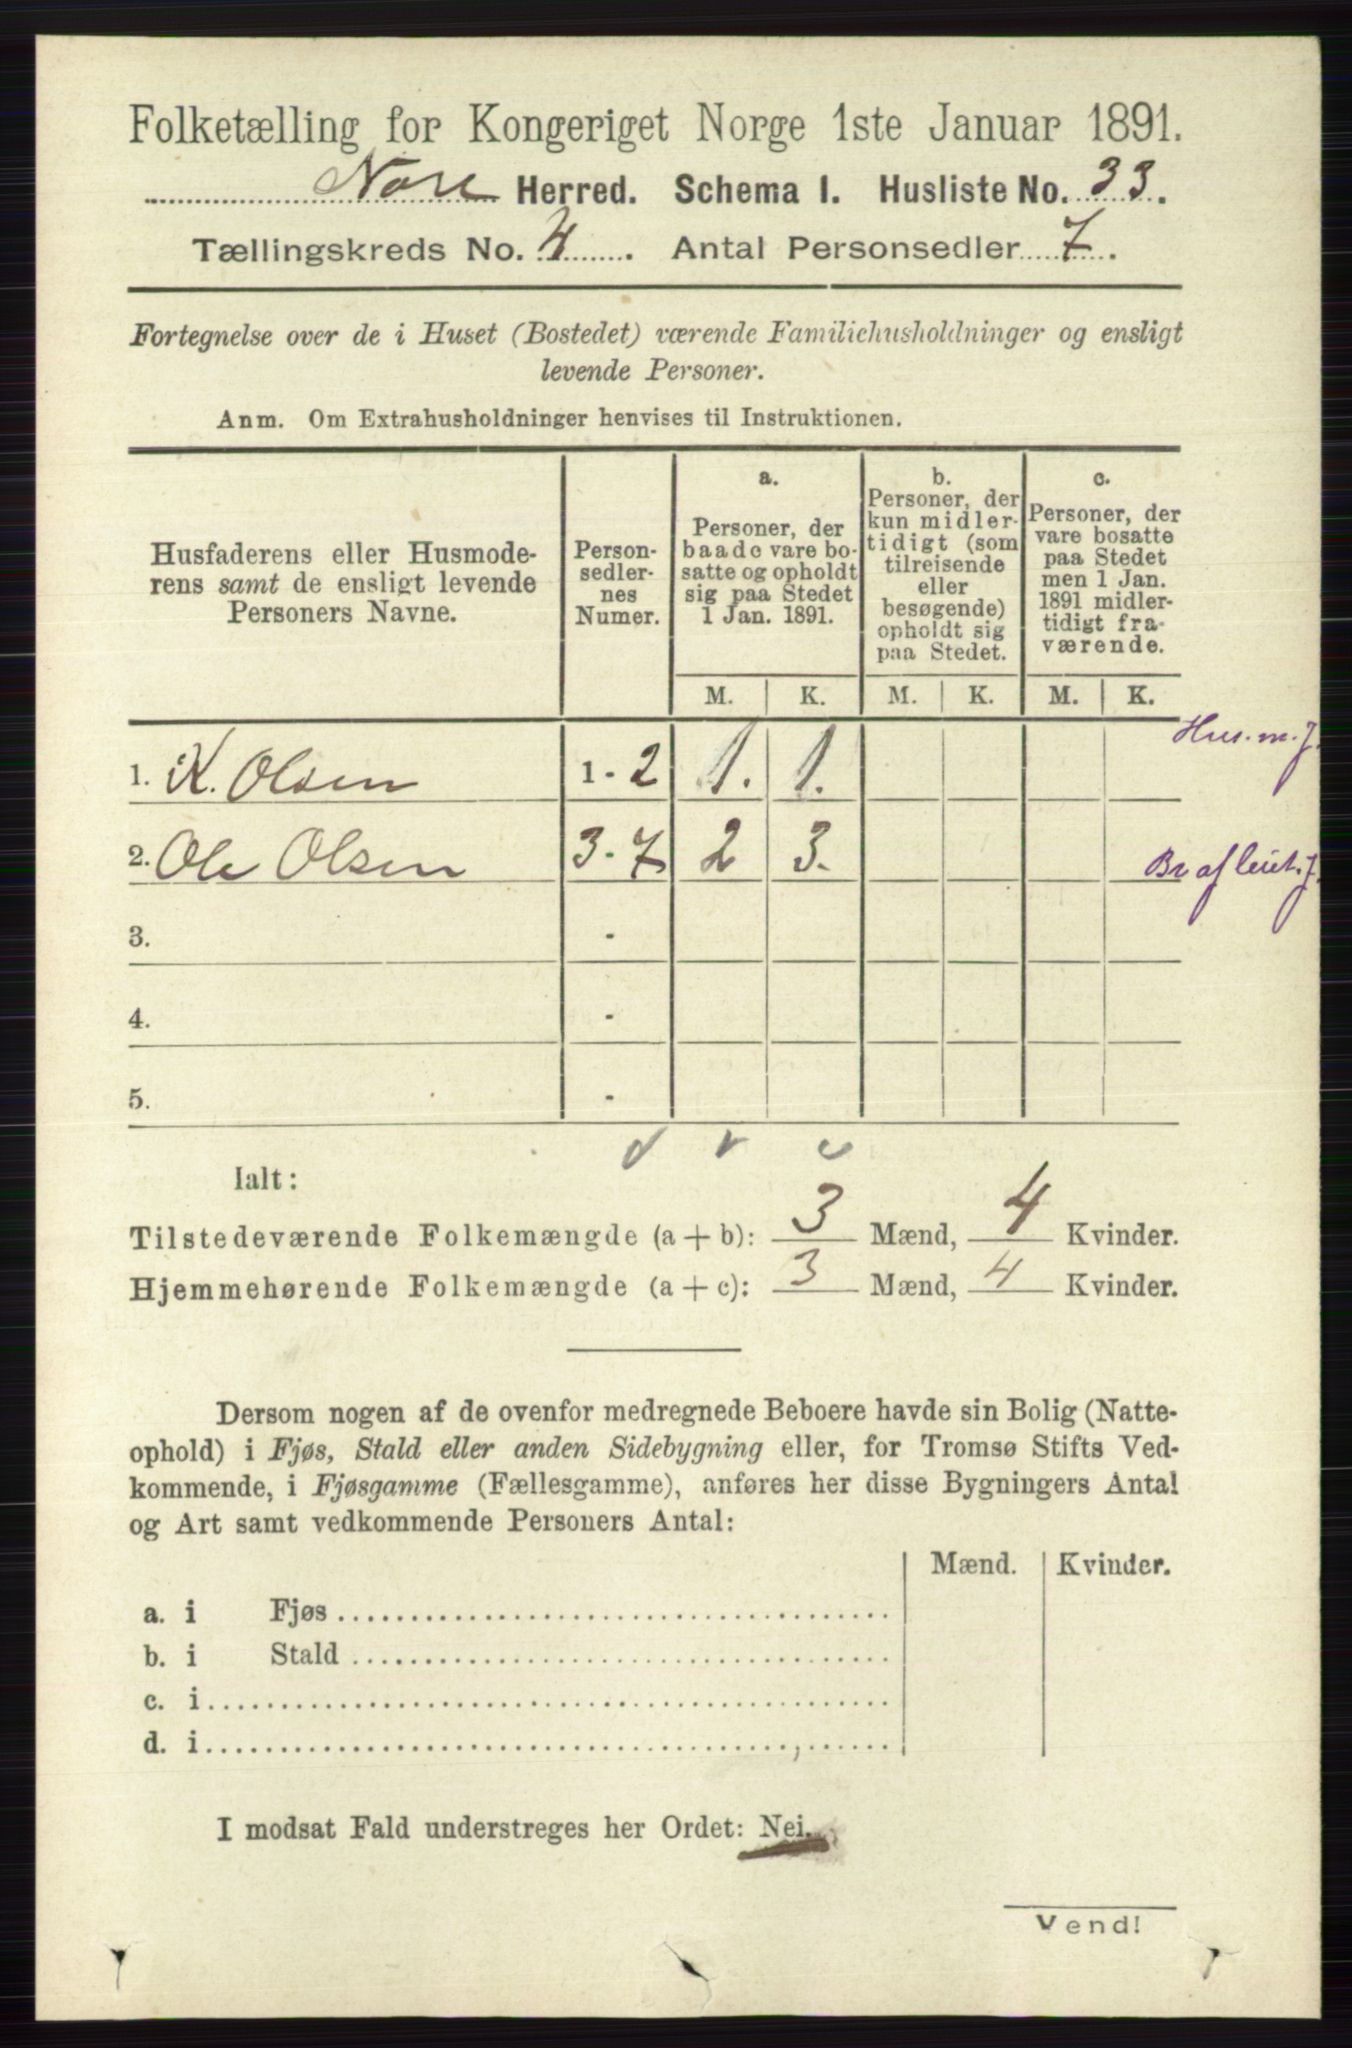 Folketælling for Kongeriget Norge 1ste Januar 1891.
Nore Herred. Schema I. Husliste No. 33.
Tællingskreds No. 4. Antal Personsedler 7.
Fortegnelse over de i Huset (Bostedet) værende Familiehusholdninger og ensligt
levende Personer.
Anm. Om Extrahusholdninger henvises til Instruktionen.
Husfaderens eller Husmode-
rens samt de ensligt levende
Personers Navne.
Person-
sedler-
nes
Numer.
a.
Personer, der
baade vare bo-
satte og opholdt
sig paa Stedet
1 Jan. 1891.
b.
Personer, der
kun midler-
tidigt (som
tilreisende
eller
besøgende)
opholdt sig
paa Stedet.
c.
Personer, der
vare bosatte
paa Stedet
men 1 Jan.
1891 midler-
tidigt fra-
værende.
M. K. M. K. M. K.
1. K. Olsen 1-2 1. 1. Hus.m.J.
2. Ole Olsen 3-7 2 3. Br af leiet.J.
3. -
4. -
5. -
Ialt:
Tilstedeværende Folkemængde (a + b): 3 Mænd, 4 Kvinder.
Hjemmehørende Folkemængde (a + c): 3 Mænd, 4 Kvinder.
Dersom nogen af de ovenfor medregnede Beboere havde sin Bolig (Natte-
ophold) i Fjøs, Stald eller anden Sidebygning eller, for Tromsø Stifts Ved-
kommende, i Fjøsgamme (Fællesgamme), anføres her disse Bygningers Antal
og Art samt vedkommende Personers Antal:
Mænd. Kvinder.
a. i Fjøs
b. i Stald
c. i
d. i
I modsat Fald understreges her Ordet: Nei.
Vend!